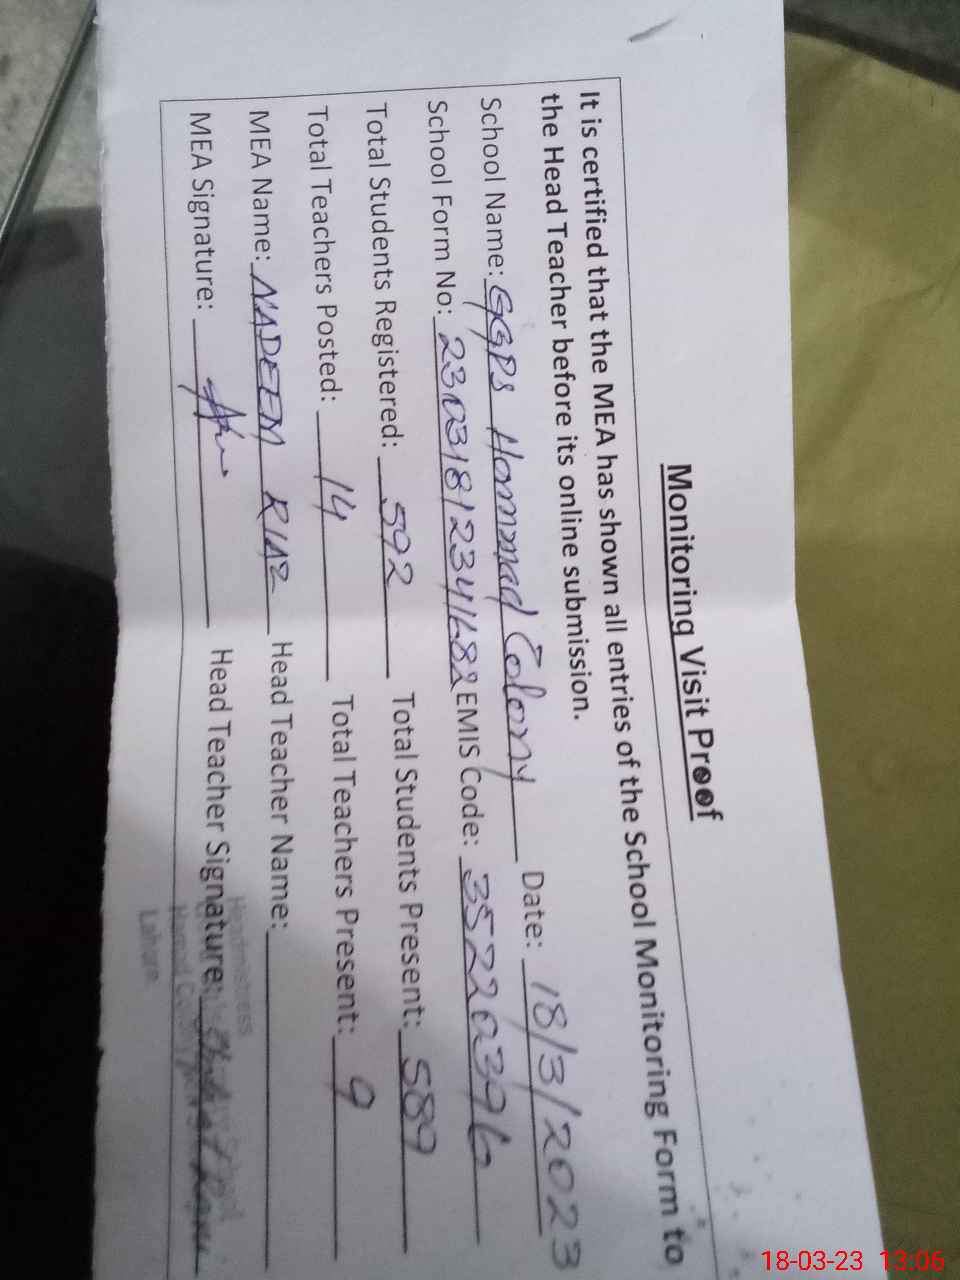 Monitoring Visit Proof
It is certified that the MEA has shown all entries of the School Monitoring Form to
the Head Teacher before its online submission.
School Name: GGPS Hammad Colony Date: 18/3/2023
School Form No: 23031812341682 EMIS Code: 35220396
Total Students Registered: 592 Total Students Present: 589
Total Teachers Posted: 14 Total Teachers Present: 9
MEA Name: NADEEM RIAZ Head Teacher Name:
MEA Signature: Head Teacher Signature:
Headmistress
Lahore
18-03-23 13:06